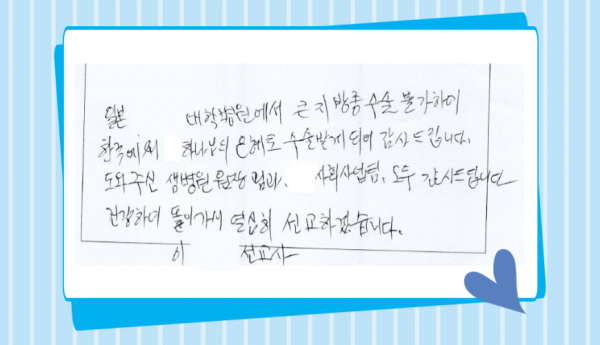 일본 대학병원에서 큰 지방종 수술 불가하여
한국에와 하나님의 은혜로 수술받게 되어 감사드립니다.
도와주신 샘병원 원장님과, 사회사업팀, 모두 감사드립니다
건강하여 돌아가서 열심히 선교하겠습니다.
이 선교사